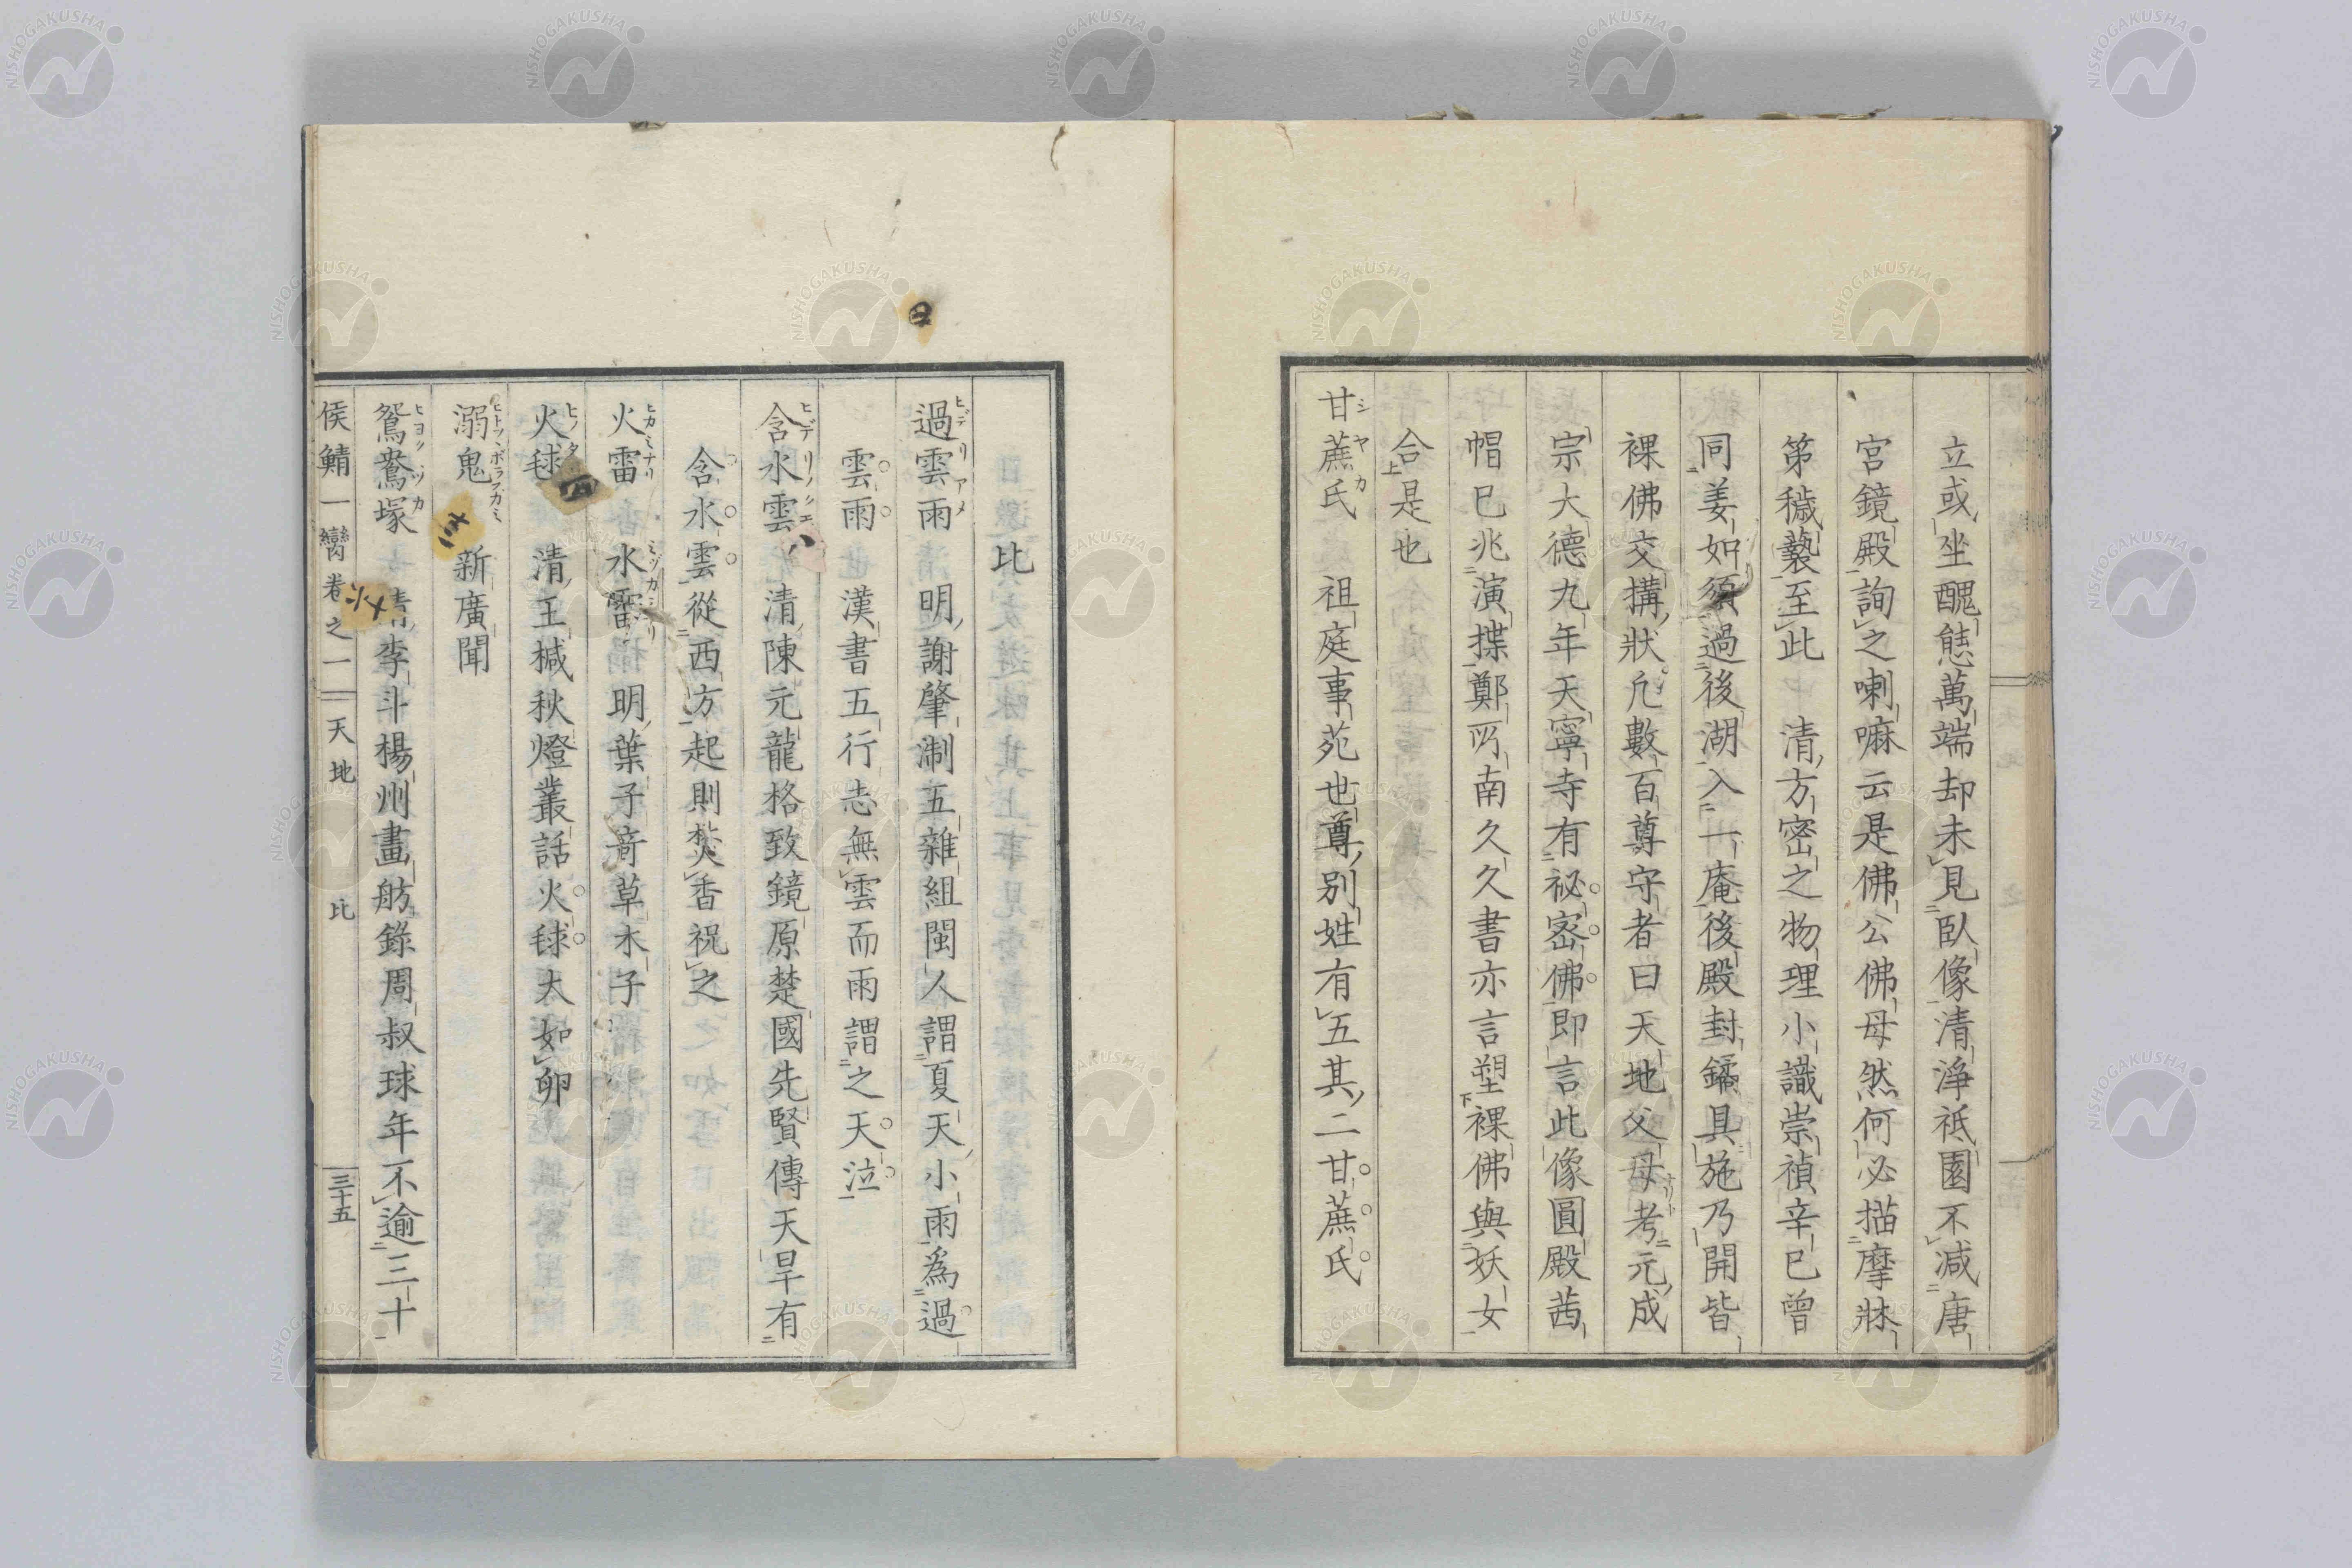 立或坐醜態萬端却未見臥像清淨祗園不減唐
宮鏡殿詢之喇嘛云是佛公佛母然何必描摩牀
第穢褻至此　清方密之物理小識崇禎辛巳曾
同姜如須過後湖入一庵後殿封鐍具施乃開皆
裸佛交搆狀凡數百尊守者曰天地父母考元成
宗大德九年天寧寺有祕密佛即言此像圓殿茜
帽已兆演揲鄭所南久久書亦言塑裸佛與妖女
合是也
甘蔗氏　祖庭事苑也尊別姓有五其二甘蔗氏
シヤカ
比
過雲雨　明謝肇淛五雜組閩人謂夏天小雨為過
ヒデリアメ
雲雨　漢書五行志無雲而雨謂之天泣
含水雲　清陳元龍格致鏡原楚國先賢傳天旱有
含水雲從西方起則焚香祝之
火雷　水雷　明葉子奇草木子
ヒカミナリ
火毬　清王棫秋燈叢話火毬大如卵
溺鬼　新廣聞
鴛鴦塚　李斗楊州畫舫錄周叔球年不逾三十
侯鯖一臠卷之一　天地　比　三十五
NISHOGAKUSHA